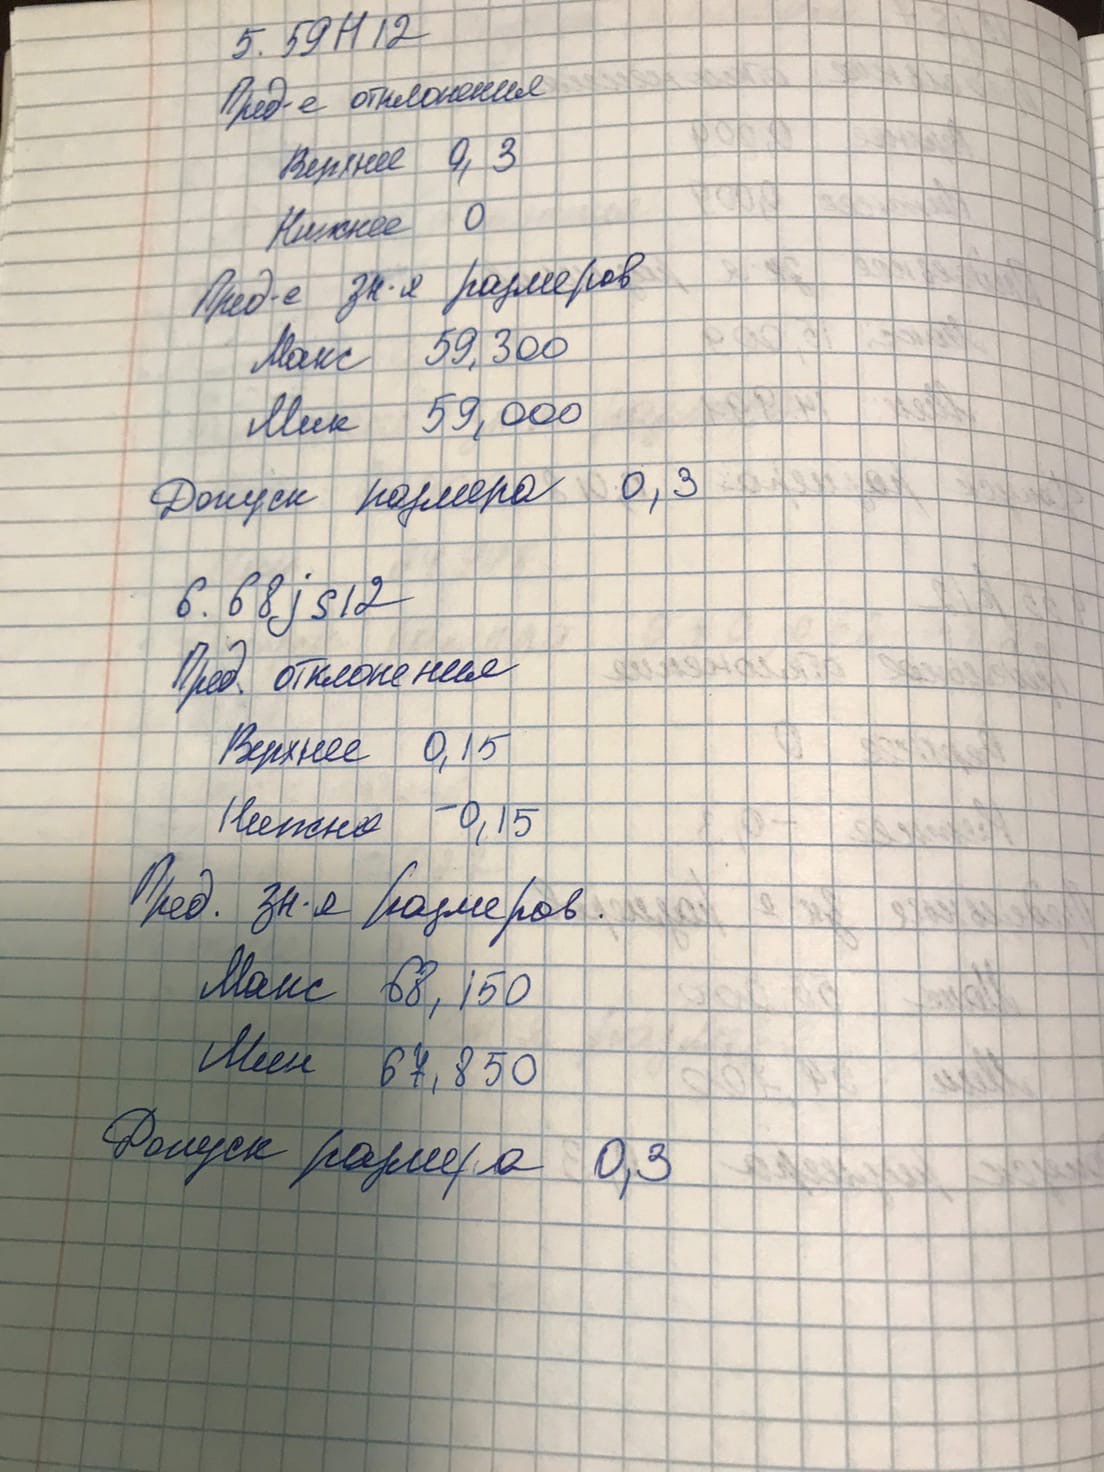 5. 59H12
Пред-е отклонения
Верхнее 0,3
Нижнее 0
Пред-е зн-я размеров
Макс 59,300
Мин 59,000
Допуск размера 0,3
6. 68js12
Пред. отклонения
Верхнее 0,15
Нижне -0,15
Пред. зн-я размеров.
Макс 68,150
Мин 67,850
Допуск размера 0,3